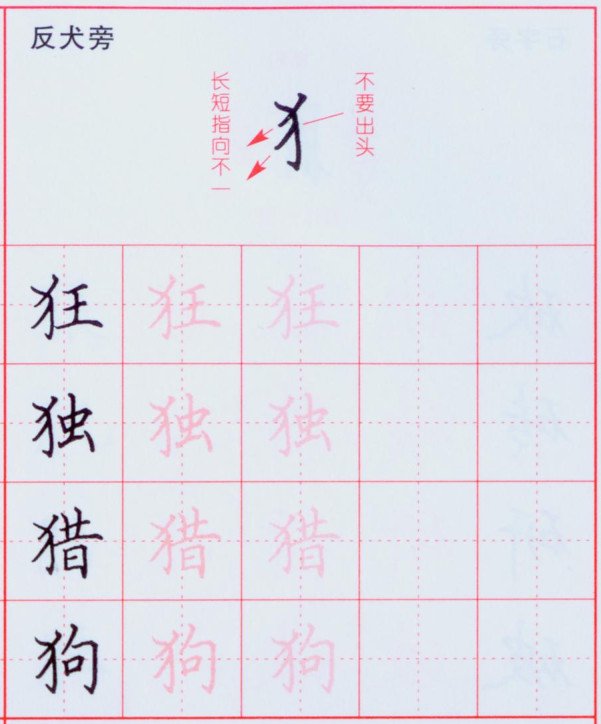 反犬旁
不要出头
犭
长短指向不一
狂 狂 狂
独 独 独
猎 猎 猎
狗 狗 狗